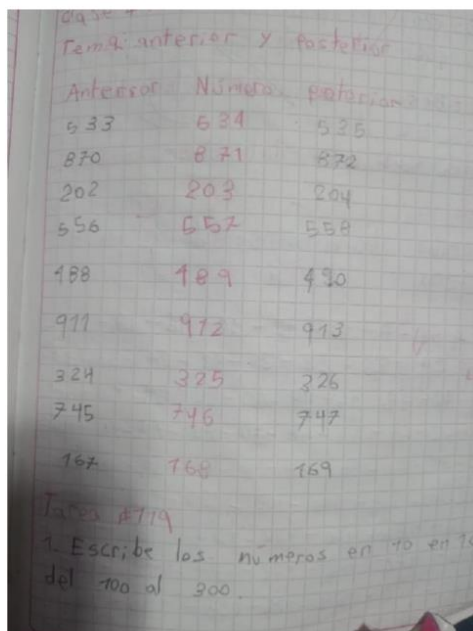 Clase #
Tema: anterior y posterior
Anterior Número posterior
533 534 535
870 871 872
202 203 204
556 557 558
488 489 490
911 912 913
324 325 326
745 746 747
167 168 169
Tarea #119
1. Escribe los números en 10 en 10
del 100 al 300.